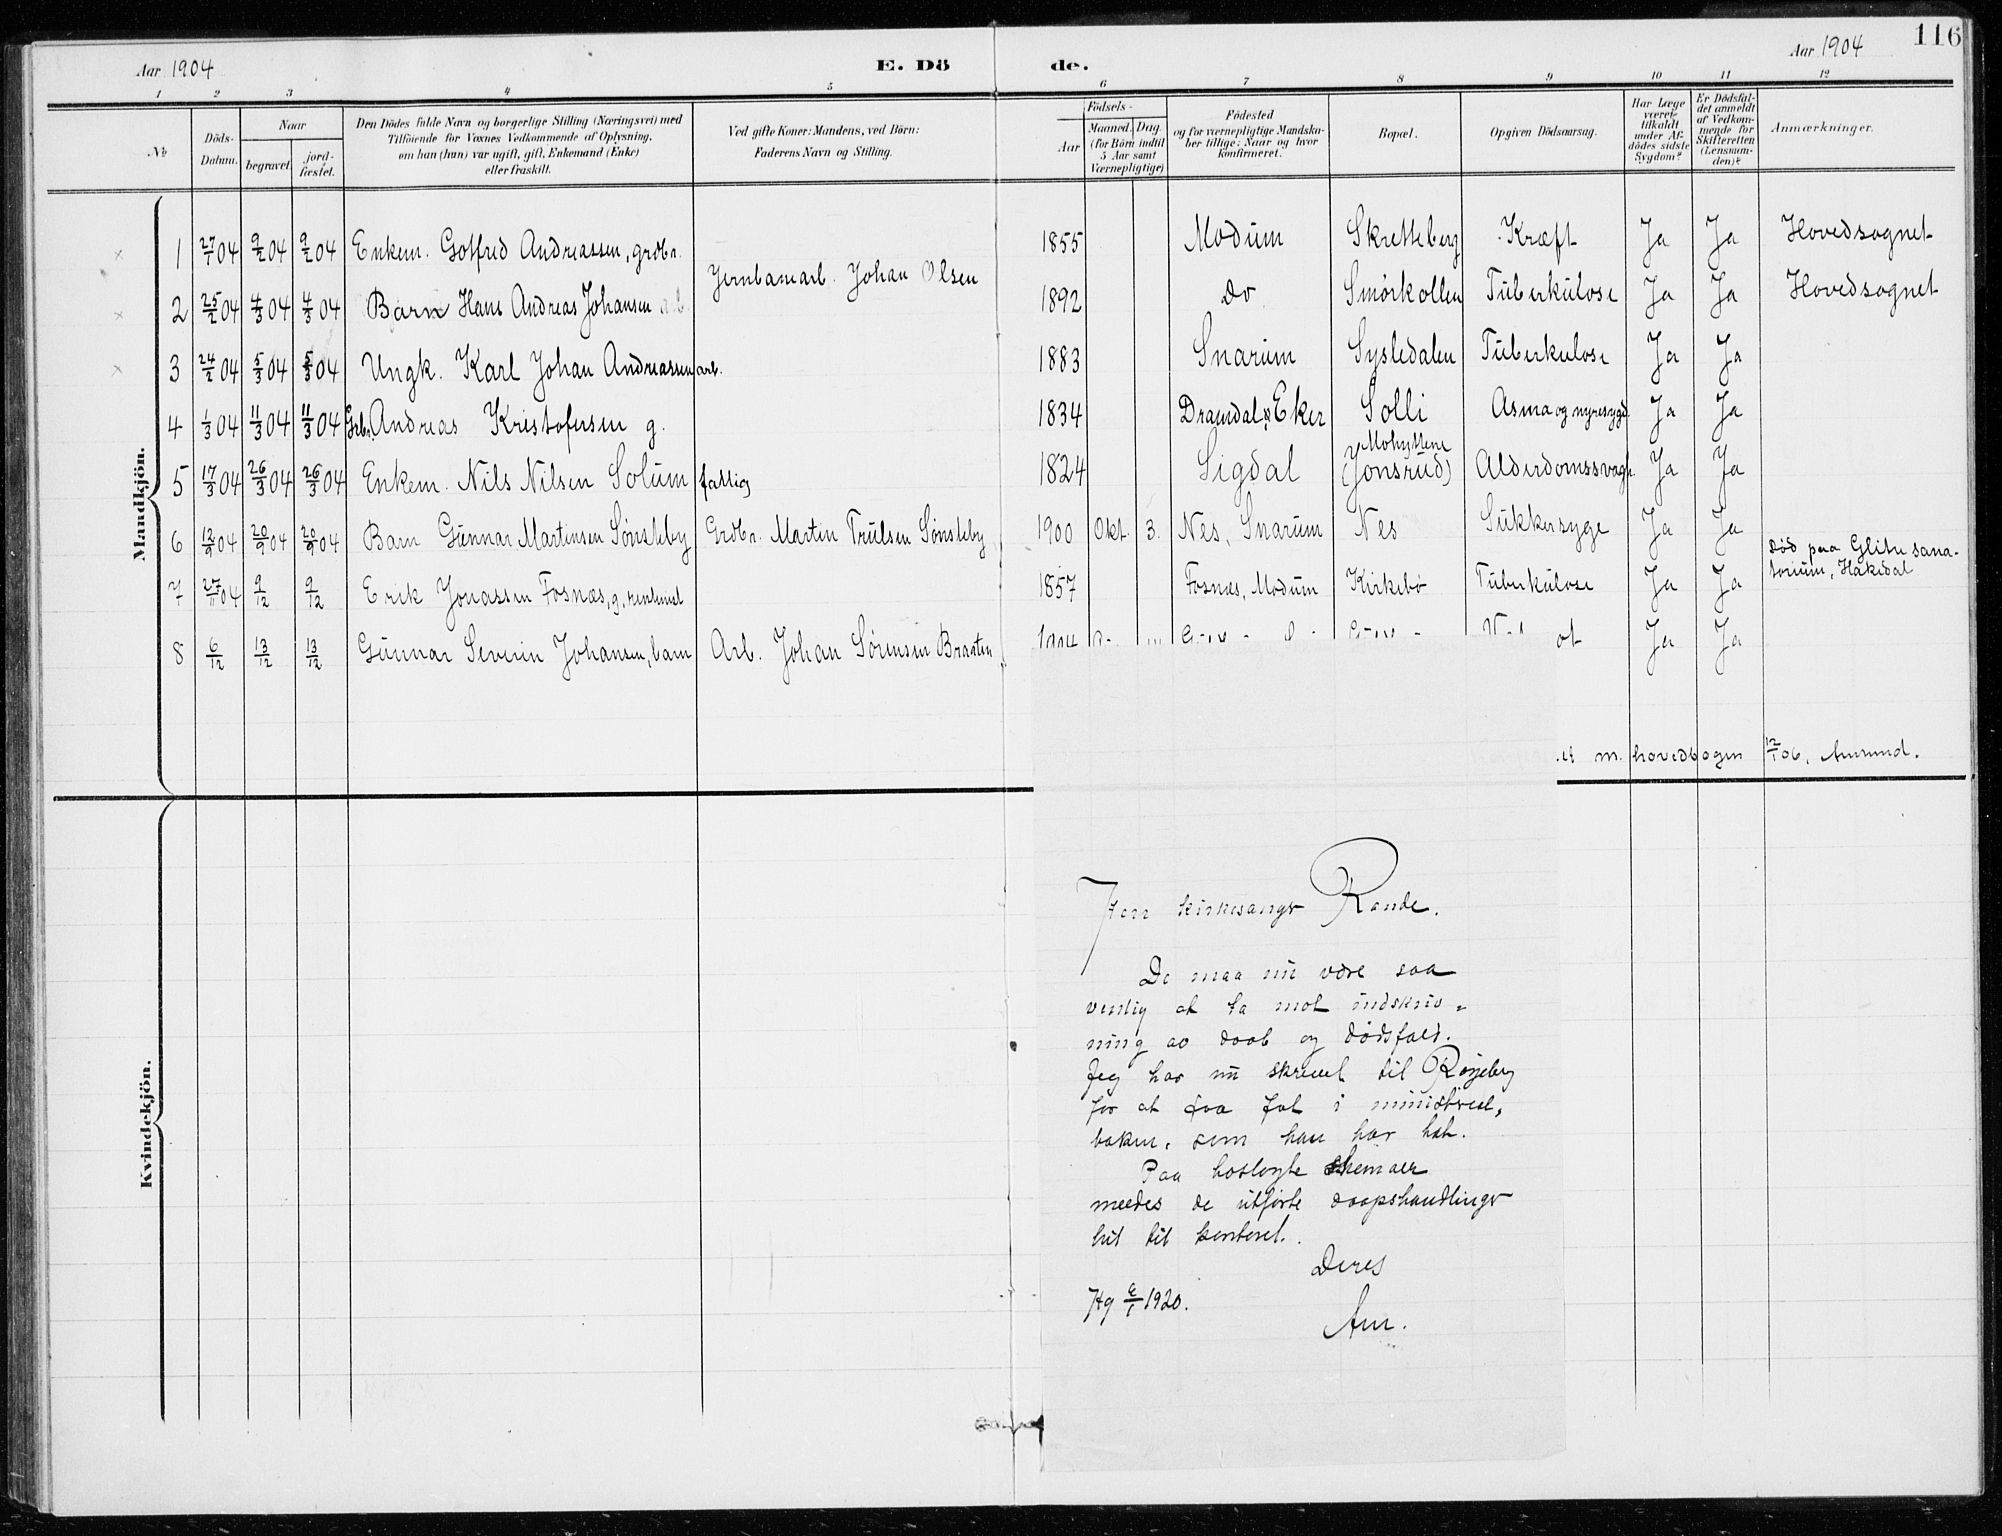 116
Aar 1904 E. Dö de. Aar 1904
1 2 3 4 5 6 7 8 9 10 11 12
No
Döds-Datum.
Naar
begravet. jord-fæstet.
Den Dödes fulde Navn og borgerlige Stilling (Næringsvei) med
Tilföiende for Voxnes Vedkommende af Oplysning,
om han (hun) var ugift, gift, Enkemand (Enke)
eller fraskilt.
Ved gifte Koner: Mandens, ved Börn:
Faderens Navn og Stilling.
Födsels-
Aar
Maaned. Dag.
(for Börn indtil
5 Aar samt
Værnepligtige)
Födested
og for værnepligtige Mandska-
ber tillige: Naar og hvor
konfirmeret.
Bopæl.
Opgiven Dödsaarsag.
Har Læge
været
tilkaldt
under Af-
dödes sidste
Sygdom?
Er Dödsfal-
det anmeldt
af Vedkom-
mende for
Skifteretten
(Lensman-
den)?
Anmærkninger.
Mandkjön.
1 27/1 04 9/2 04 9/2 04 Enkem. Gotfred Andreassen, grdbr. 1855 Modum Skretteberg Kræft Ja Ja Hovedsognet
2 25/2 04 4/3 04 4/3 04 Barn Hans Andreas Johansen Jernbanearb. Johan Olsen 1892 do Smörkollen Tuberkulose Ja Ja Hovedsognet
3 24/2 04 5/3 04 5/3 04 Ungk. Karl Johan Andreassen arb. 1883 Snarum Sysledalen Tuberkulose Ja Ja
4 1/3 04 11/3 04 11/3 04 Grbr. Andreas Kristofersen g. 1834 Eker Solli Asma og nyresygd. Ja Ja
5 17/3 04 26/3 04 26/3 04 Enkem. Nils Nilsen Solum fattig 1824 Sigdal (Jonsrud) Alderdomssvagh. Ja Ja
6 12/9 04 20/9 04 20/9 04 Barn Gunnar Martinsen Sønsteby Grdbr. Martin Trulsen Sønsteby 1900 Okt. 3. Nes, Snarum Nes Sukkersyge Ja Ja
7 27/11 04 9/12 9/12 Erik Jonassen Fosnæs, g. 1857 Fosnæs, Modum Kirkebø Tuberkulose Ja Ja død paa Glitre sana-
torium, Hakedal
8 6/12 13/12 13/12 Gunnar Severin Johansen, barn Arb. Johan Sørensen Braaten Ja Ja
m. hovedbogen 12/1 06, Amrund.
Kvindekjön.
Herr kirkesanger Rande.
De maa nu være saa
venlig at ta mot indskriv-
ning av daab og dødsfald.
Jeg har nu skrevet til
for at faa fat i ministeriel-
boken, som han har hat.
Paa hoslagte skemaer
meldes de utførte daapshandlinger
hit til kontoret.
Deres
Hg 6/1 1920.
Am.